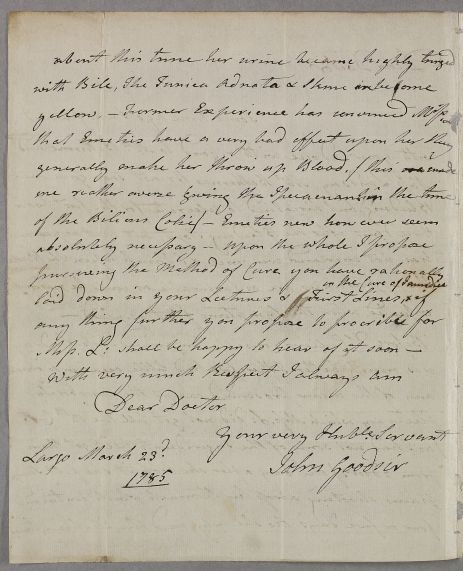 about this time her urine became highly tinged
with Bile, the Tunica Adnata & Skin become
yellow, — Former Experience has convinced
that Emetics have a very bad effect upon her they
generally make her throw up Blood. (this made
me rather averse giving the Ipecacuanha in the time
of the Bilious Colic) — Emetics now however seem
absolutely necessary — Upon the whole I propose
pursueing the Method of Cure you have rationally
in the Cure of Jaundice
laid down in your Lectures & First Lines, if
any thing further you propose to prescribe for
Miss. L: shall be happy to hear of it soon —
With very much Respect I always am
Dear Doctor
Your very Huble Servant
Largo March 23d. John Goodsir
1785